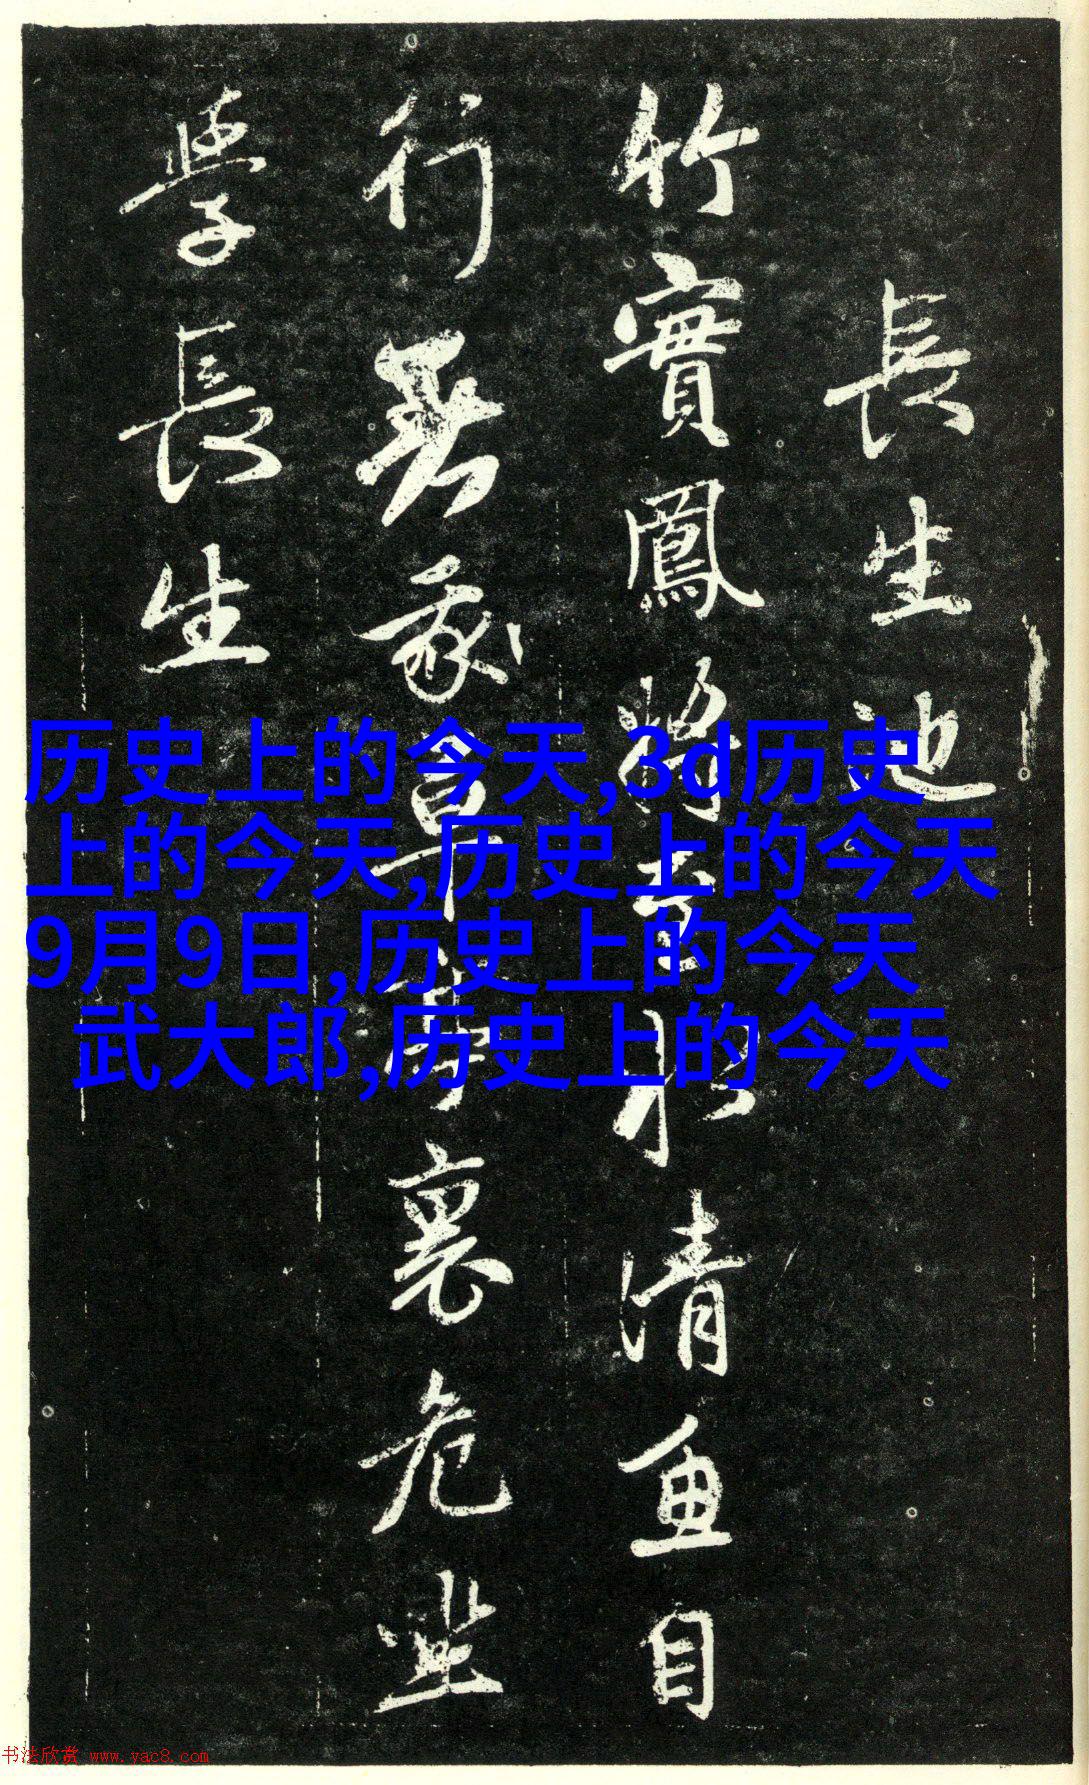 長生池
竹實鳳將至水清魚自
行吾家草裏危坐
學長生
历史上的今天,3d历史
上的今天,历史上的今天
9月9日,历史上的今天
武大郎,历史上的今天
书法欣赏 www.yac8.com